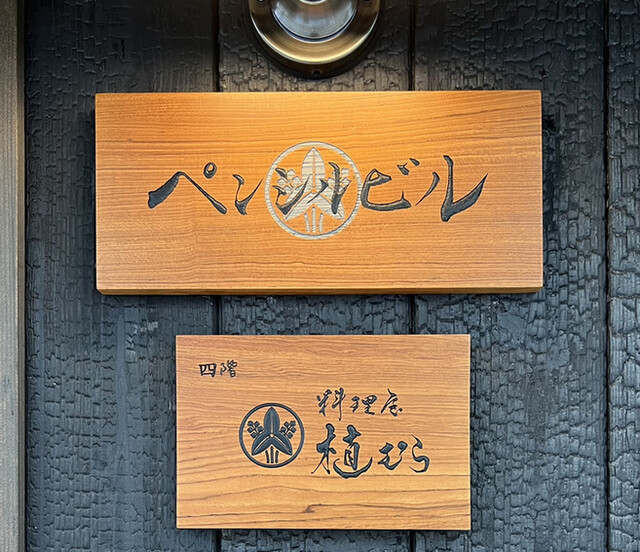 ペンシルビル
四階
料理屋
植むら